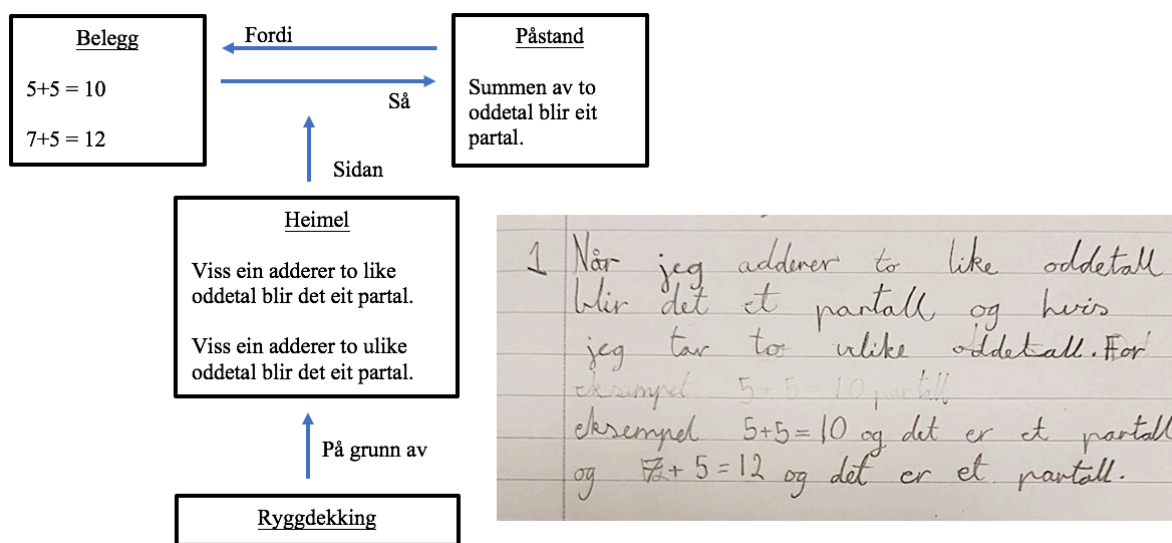 Belegg
5+5 = 10
7+5 = 12
Fordi
Så
Påstand
Summen av to
oddetal blir eit
partal.
Sidan
Heimel
Viss ein adderer to like
oddetal blir det eit partal.
Viss ein adderer to ulike
oddetal blir det eit partal.
På grunn av
Ryggdekking
1 Når jeg adderer to like oddetall
blir det et partall og hvis
jeg tar to ulike oddetall. For
eksimpel 5+5=10 partall
eksempel 5+5=10 og det er et partall
og 7+5=12 og det er et partall.